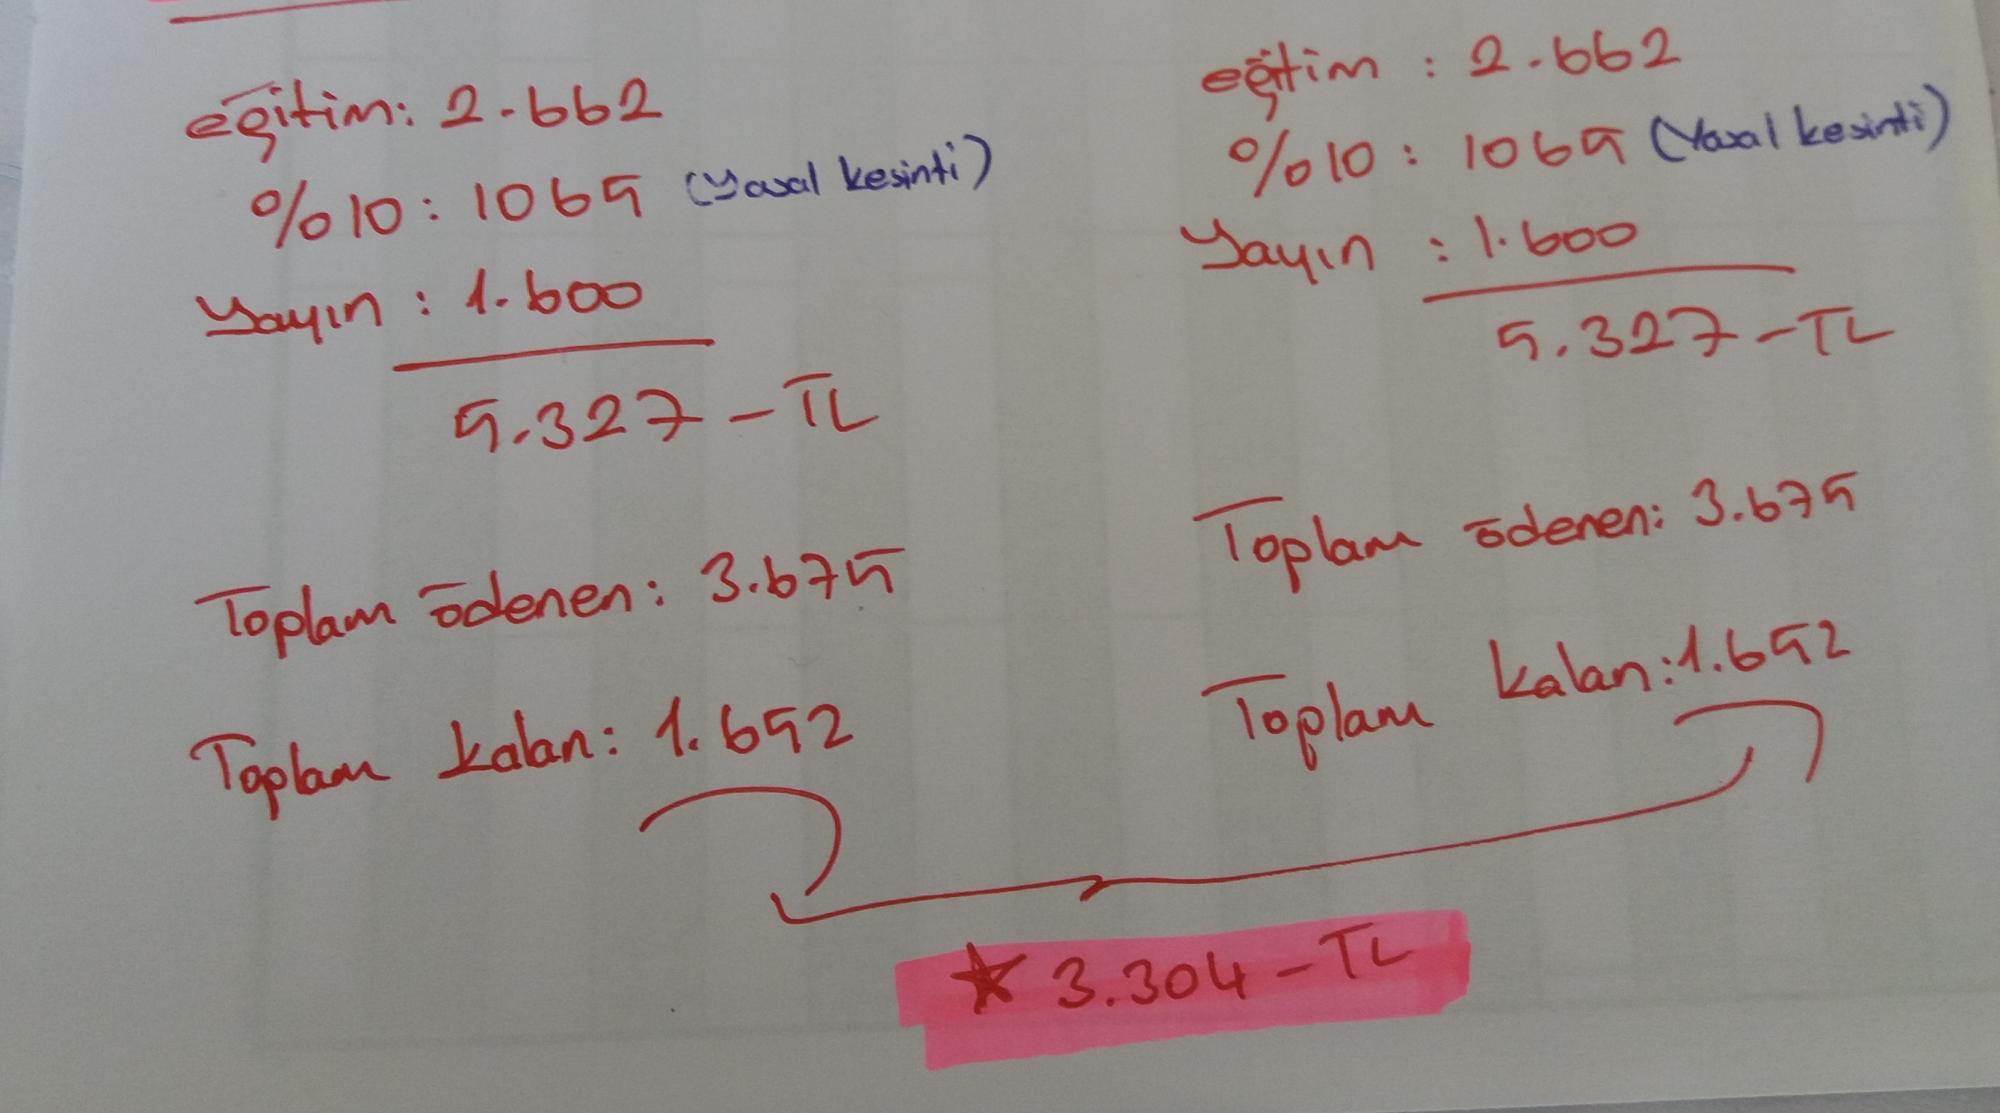 eğitim: 2.662
%10: 1065 (Yasal kesinti)
Yayın: 1.600
5.327-TL
Toplam ödenen: 3.675
Toplam kalan: 1.652
eğitim: 2.662
%10: 1065 (Yasal kesinti)
Yayın: 1.600
5.327-TL
Toplam ödenen: 3.675
Toplam kalan: 1.652
★ 3.304-TL